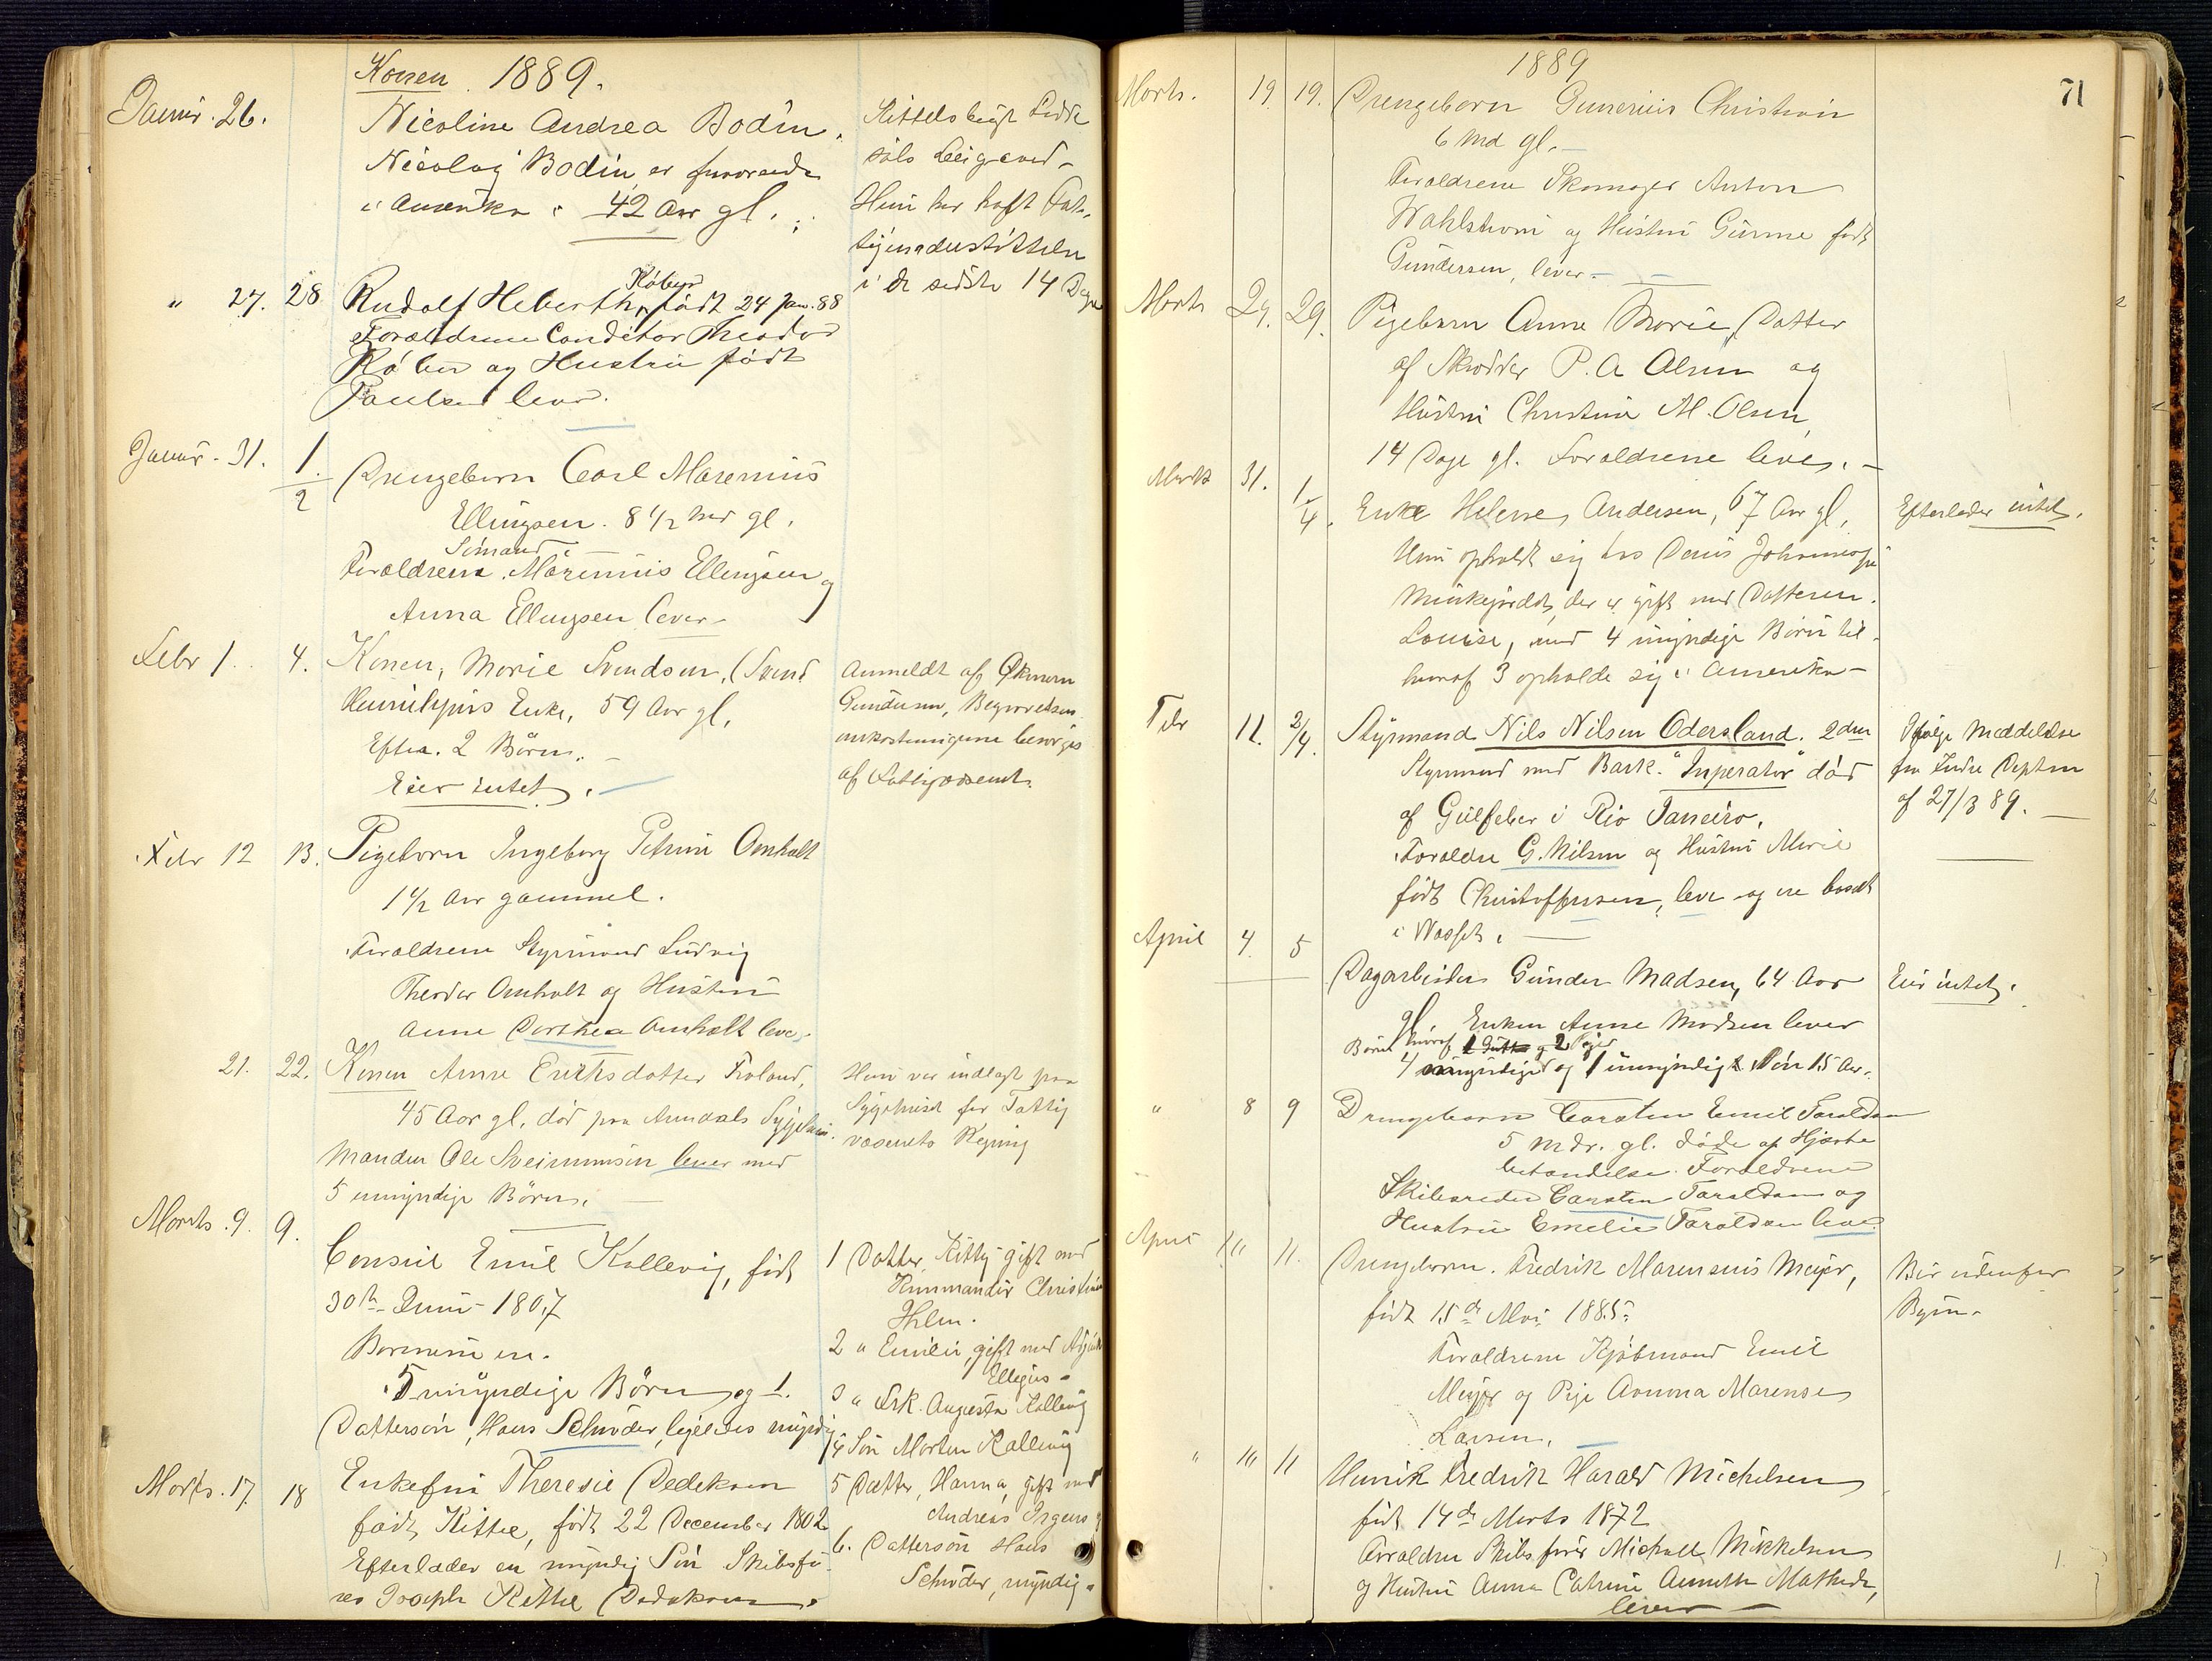 Konen. 1889.
Januar. 26.
Nicoline Andrea Bodin.
Nicolay Bodin, er fraværende
i Amerika : 42 Aar gl.
Hun har haft Fat-
tigunderstöttelse
i de sidste 14 Dage
" 27. 28
Röber
Rudolf Heberth, födt 24 Jan. 88
Forældrene Conditor Theodor
Röber og Hustru födt
Paulsen lever.
Januar. 31. 1/2
Drengebarn Carl Marenius
Ellingsen. 8 1/2 Md gl.
Sömand
Forældrene Marenius Ellingsen og
Anna Ellingsen lever -
Febr 1. 4.
Konen, Marie Svendsen, (Svend
Enke, 59 Aar gl,
Efterl. 2 Börn. -
Eier intet.
Anmeldt af
Gundersen, Begravelsen
omkostningerne besörges
af Fattigvæsenet.
Febr 12 13.
Pigebarn Ingeborg Petrine Omholt
1 1/2 Aar gammel.
Forældrene Styrmand Ludvig
Theodor Omholt og Hustru
Anne Dorthea Omholt lever.
21. 22.
Konen Anne Eriksdatter Froland,
45 Aar gl, död paa Arendals Sygehus.
Manden Ole lever med
5 umyndige Börn. -
Hun var indlagt paa
Sygehuset for Fattig
væsenets Regning
Marts. 9. 9.
Consul Emil Kallevig, födt
30te Juni 1807
Börnene ere.
5 myndige Börn og 1.
Dattersön, Hans Schröder, ligeledes myndig
1 Datter, Kitty gift med
Kommandör Christian
Holm.
2 " Emilie, gift med
3 " Frk. Augusta Kallevig
4 Sön Morten Kallevig
5 Datter, Hanna, gift med
Andreas Irgens
6. Dattersön Hans
Schröder, myndig.
Marts. 17. 18
Enkefru Theresie Dedekam
födt Kittel, födt 22 December 1802
Efterlader en myndig Sön Skibsfö-
rer Joseph Kittel Dedekam.
1889
71
Marts. 19. 19.
Drengebarn Gunerius Christian
6 Md gl. -
Forældrene Skomager Anton
Wahlstrom og Hustru Gurine födt
Gundersen, lever. -
Marts 29. 29.
Pigebarn Anne Marie, Datter
af Skrædder P. A Olsen og
Hustru Christine M. Olsen,
14 Dage gl. Forældrene lever. -
Marts 31. 1/4.
Enke Helene Andersen, 67 Aar gl,
Hun opholdt sig hos
der er gift med Datteren
Louise, med 4 umyndige Börn til
hvoraf 3 opholde sig i Amerika -
Efterlader intet.
Febr 11. 2/4.
Styrmand Nils Nilsen Odersland. 2den
Styrmand med Bark. "Imperator" död
af Gulfeber i Rio Janeiro,
Forældre G. Nilsen og Hustru Marie
födt Christoffersen, lever og ere bosat
i
Ifölge Meddelelse
fra Indre Deptm
af 27/3 89. -
April 4. 5
Dagarbeider Gunder Madsen, 64 Aar
gl. Enken Anne Madsen lever
Börn hvoraf og 2 Piger
4 myndige og 1 umyndig Sön 15 Aar.
Eier intet.
" 8 9
Drengebarn Carsten Emil Taraldsen
5 Mdr. gl. döde af Hjerte
betændelse. Forældrene
Skibsreder Carsten Taraldsen og
Hustru Emelie Taraldsen lever
April 10 11.
Drengebarn. Fredrik Marensius Meyer,
födt 15de Mai 1885.
Forældrene Kjöbmand Emil
Meyer og Pige Amma Marense
Larsen,
Bor udenfor
Byen.
" 10 11
Henrik Fredrik Harald Michelsen
födt 14de Marts 1872
Forældre Skibsförer Michall Mickelsen
og Hustru Anna Catrine Annette Mathide,
lever -